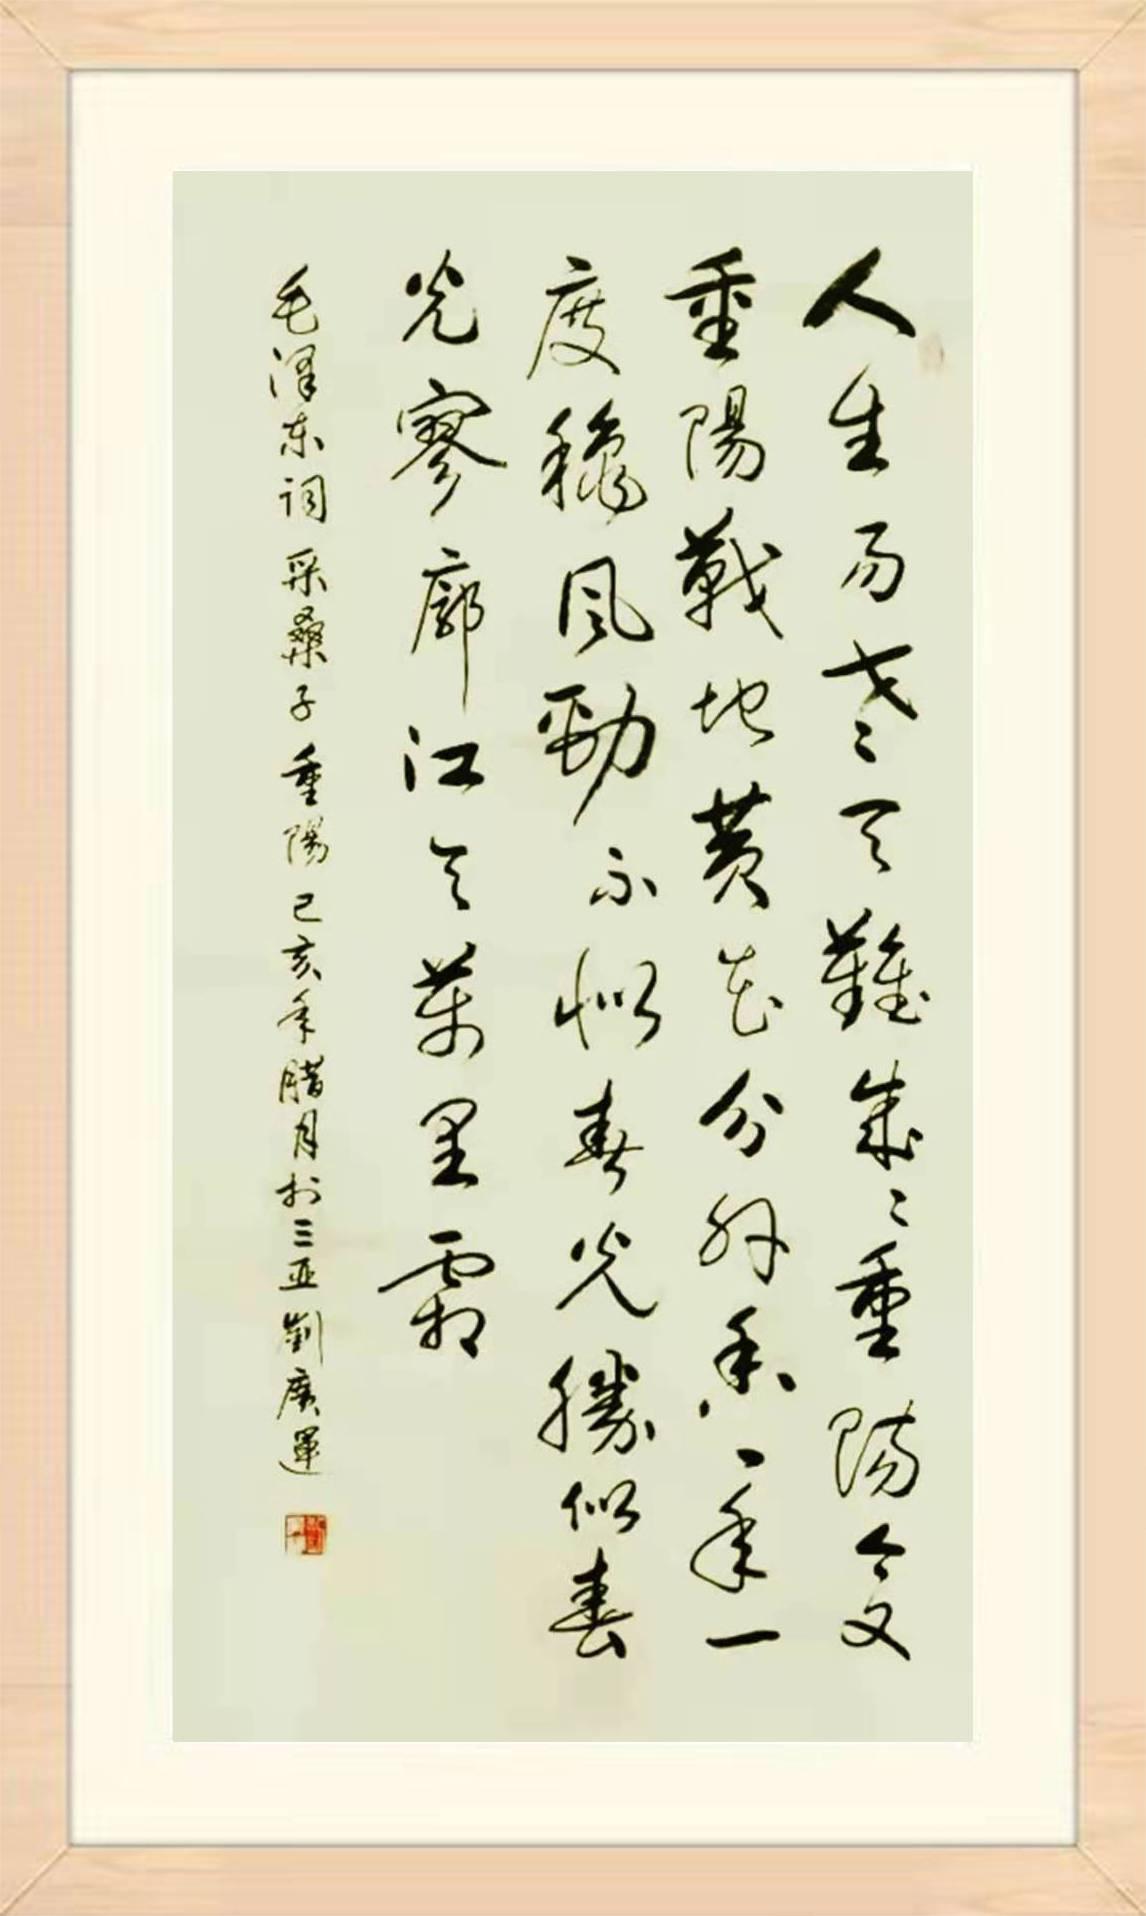 人生易老天難老歲歲重陽今又
重陽戰地黃花分外香一年一
度穐風勁不似春光勝似春
光寥廓江天萬里霜
毛泽东词采桑子重陽己亥年腊月於三亚劉廣運